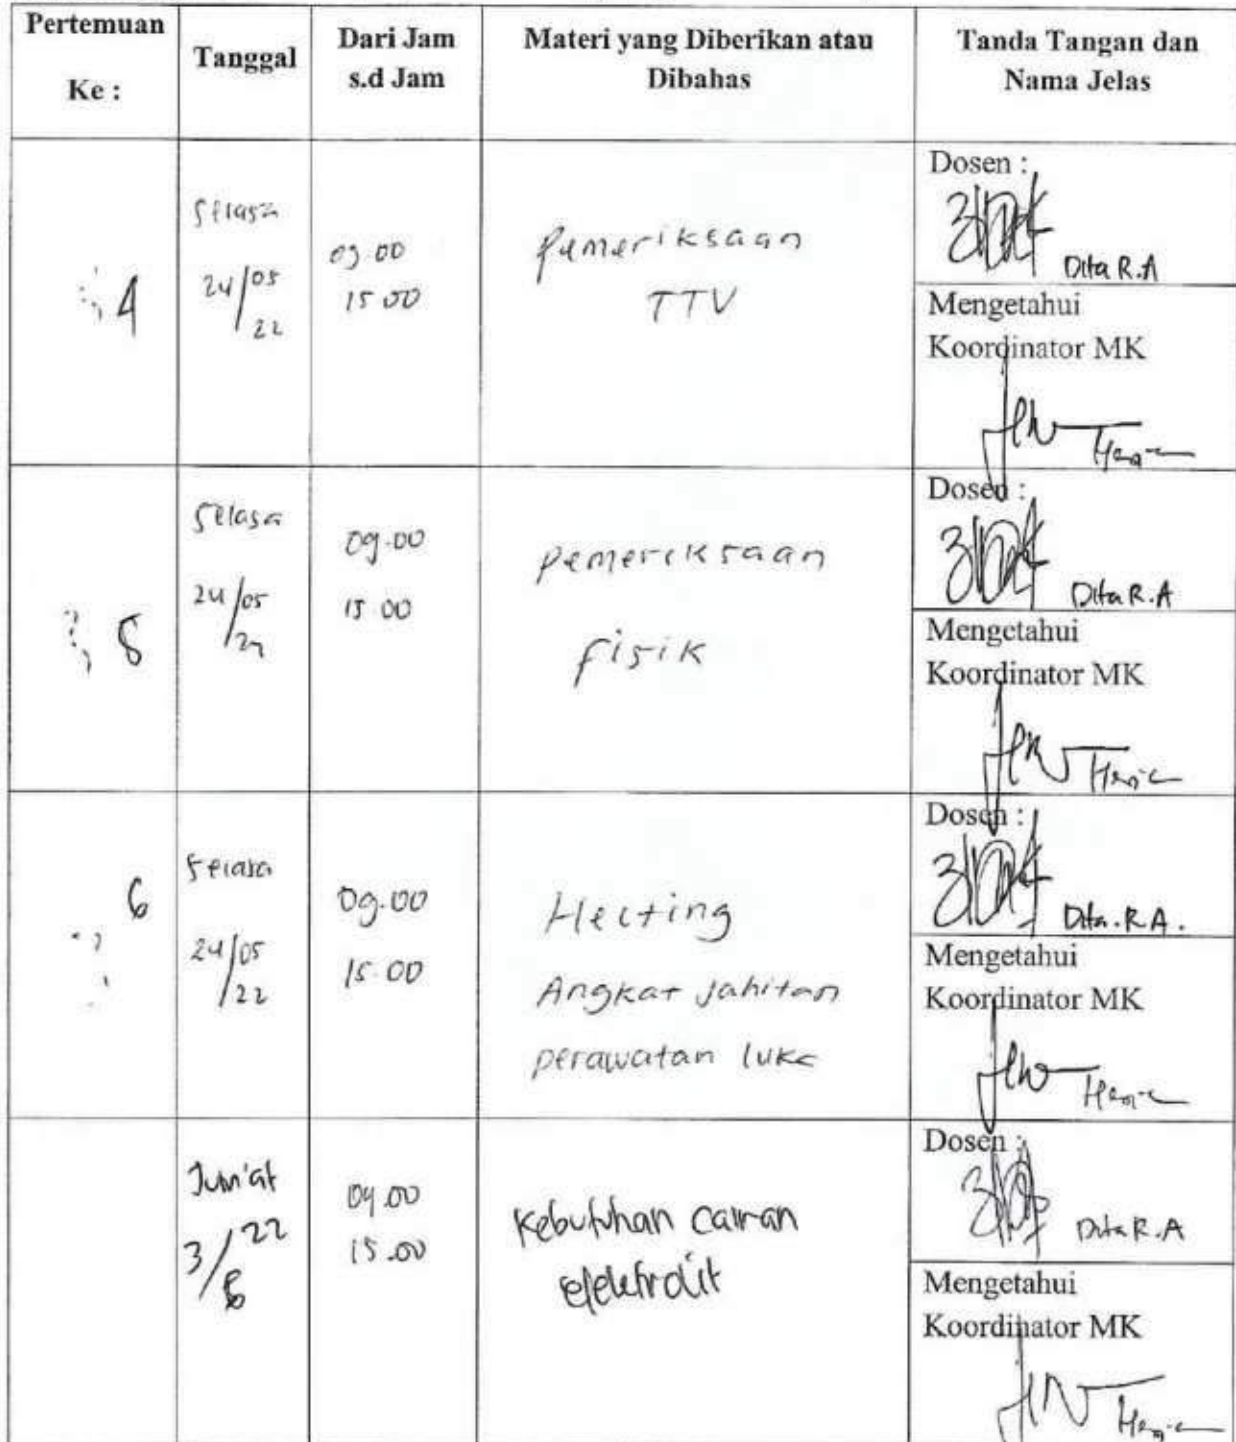 Pertemuan
Ke :
Tanggal
Dari Jam
s.d Jam
Materi yang Diberikan atau
Dibahas
Tanda Tangan dan
Nama Jelas
4
Selasa
24/05
22
09.00
15.00
Pemeriksaan
TTV
Dosen :
Dita R.A
Mengetahui
Koordinator MK
5
Selasa
24/05
09.00
15.00
pemeriksaan
fisik
Dosen :
Dita R.A
Mengetahui
Koordinator MK
6
Selasa
24/05
22
09.00
15.00
Hecting
Angkat jahitan
perawatan luka
Dosen :
Dita.R.A.
Mengetahui
Koordinator MK
Jum'at
3/6 22
09.00
15.00
Kebutuhan cairan
elektrolit
Dosen :
Dita R.A
Mengetahui
Koordinator MK